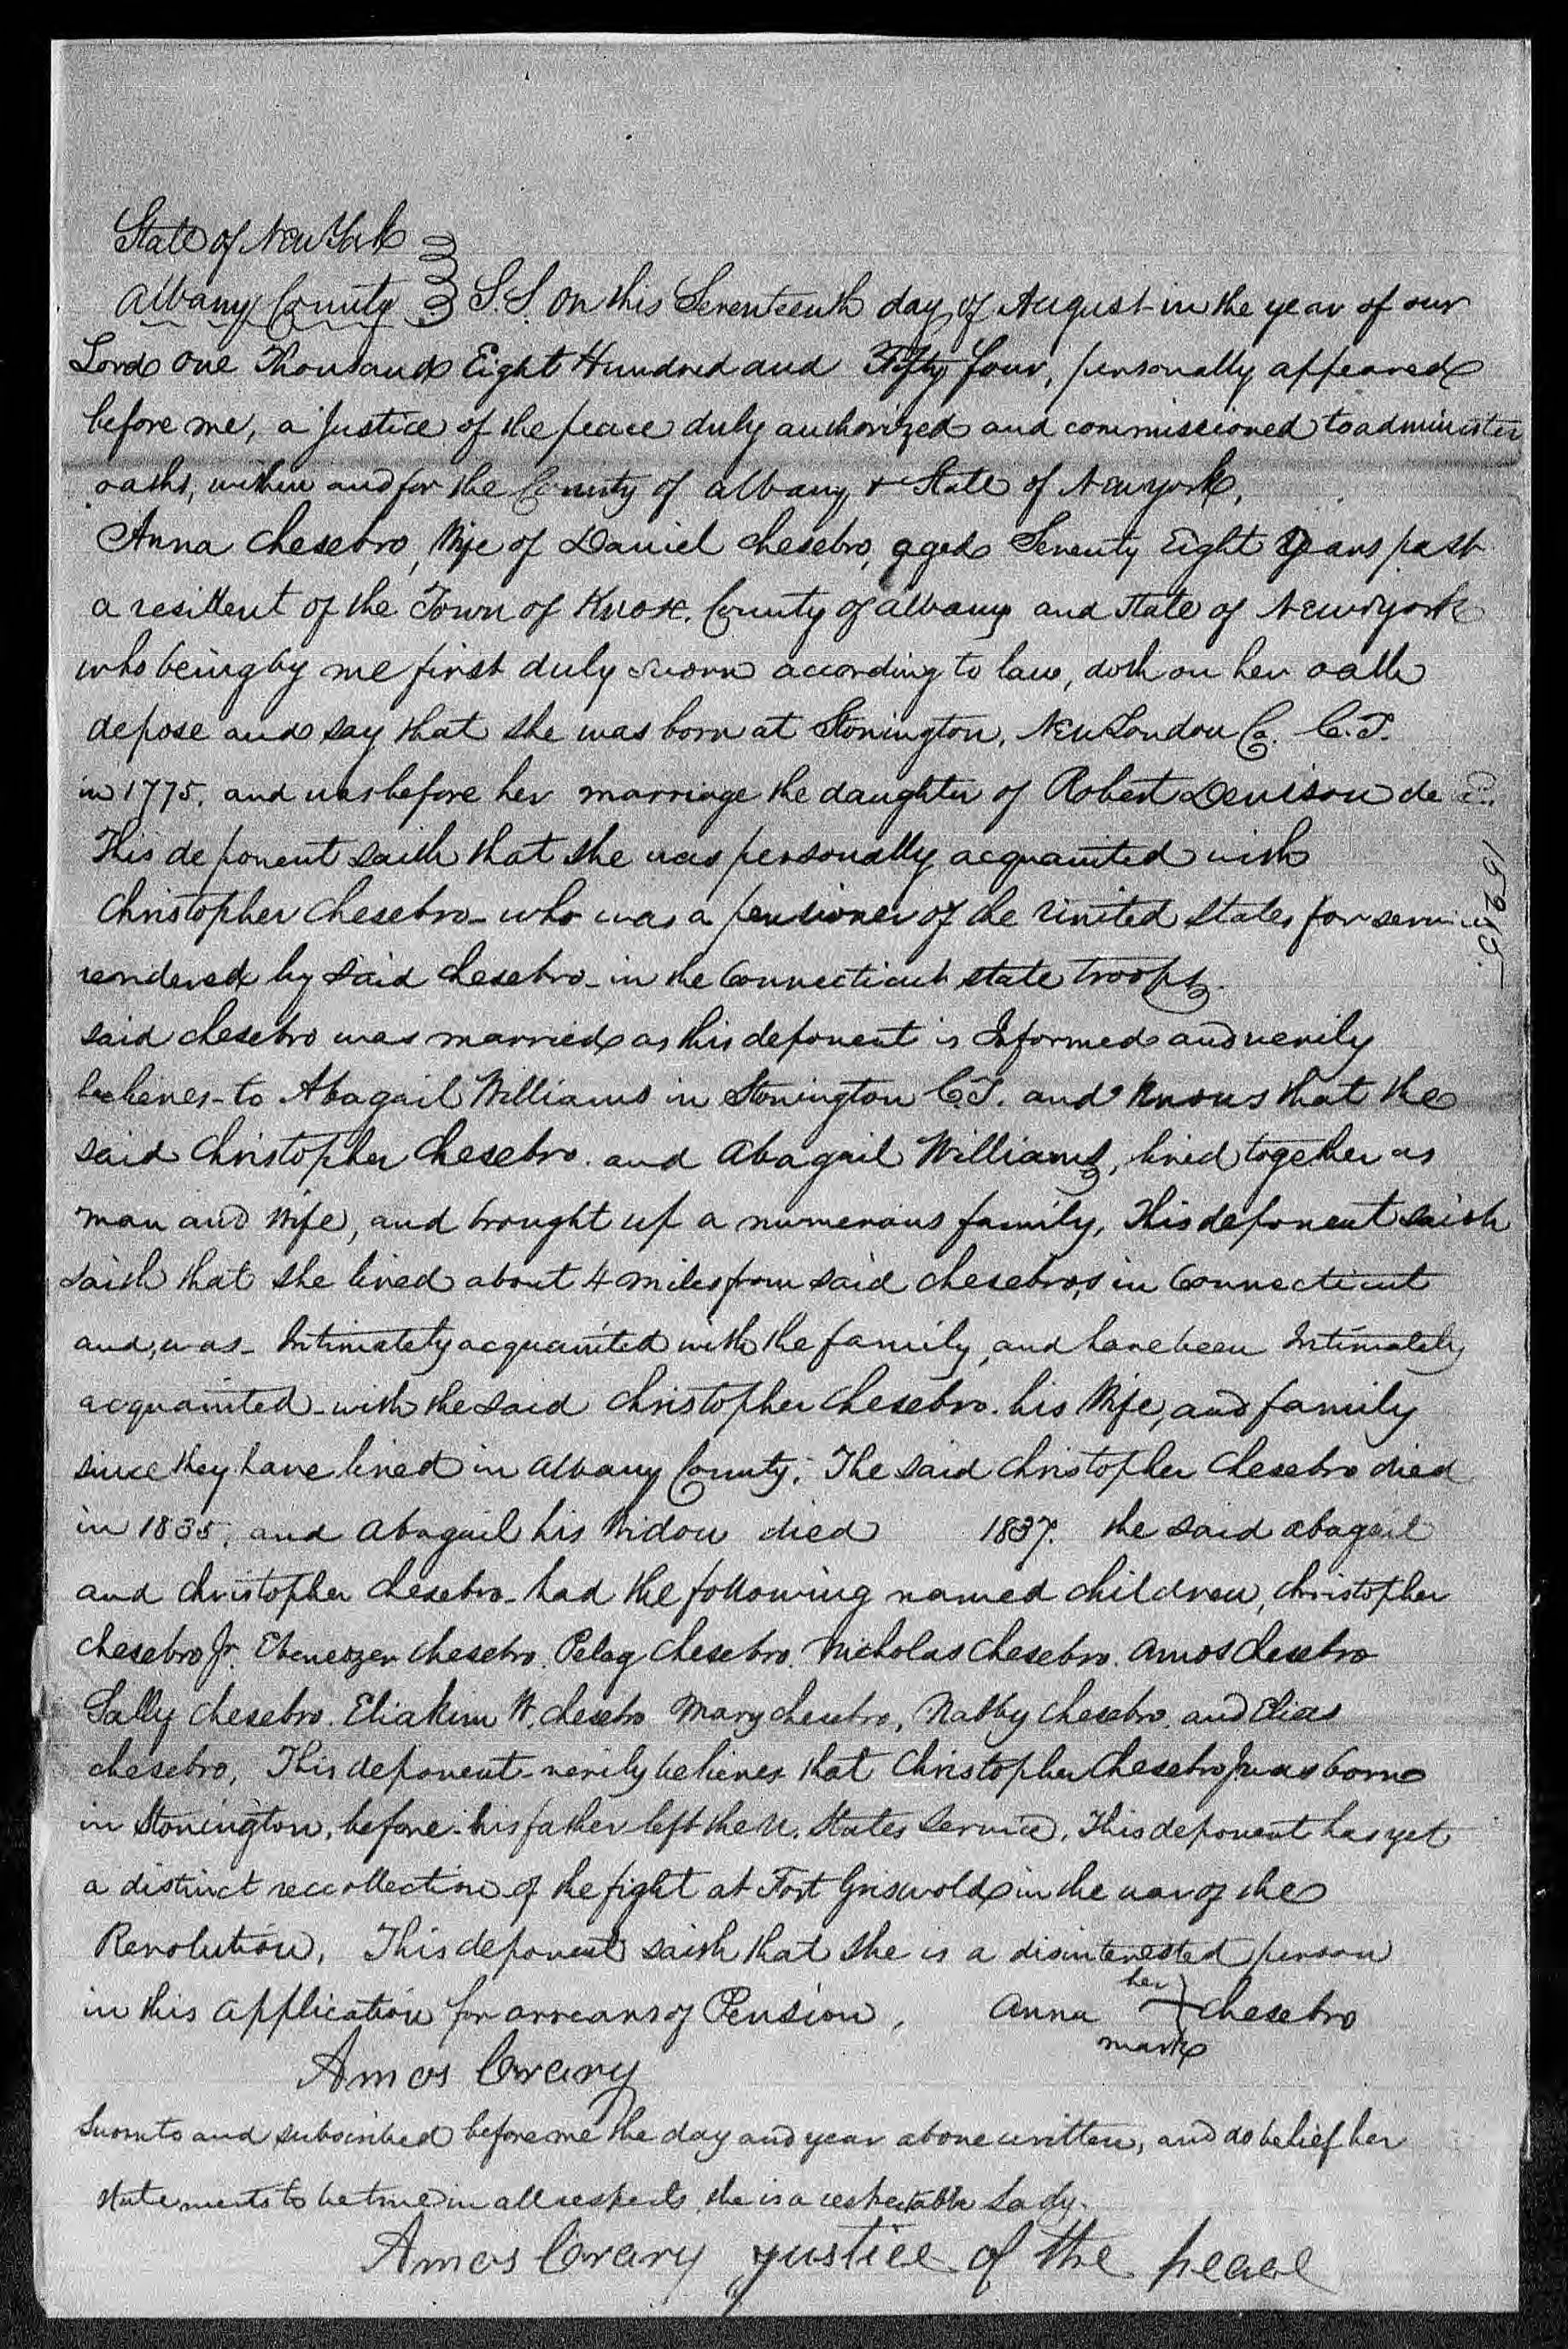 State of New York
Albany County S.S. On this Seventeenth day of August in the year of our
Lord one Thousand Eight Hundred and Fifty four, personally appeared
before me, a Justice of the peace duly authorized and commissioned to administer
oaths, within and for the County of Albany & State of New york,
Anna Chesebro, Wife of Daniel Chesebro, aged Seventy Eight Years past
a resident of the Town of Knox. County of Albany and State of New york
who being by me first duly sworn according to law, doth on her oath
depose and say that she was born at Stonington, New London Co. C.T.
in 1775. and was before her marriage the daughter of Robert Denison de
This deponent saith that she was personally acquainted with
Christopher Chesebro - who was a pensioner of the United States for service
rendered by said Chesebro - in the Connecticut state troops.
said Chesebro was married as this deponent is Informed and verily
believes - to Abagail Williams in Stonington C.T. and knows that the
said Christopher Chesebro. and Abagail Williams, lived together as
man and Wife, and brought up a numerous family, This deponent saith
saith that she lived about 4 miles from said Chesebro,s in Connecticut
and, was - Intimately acquainted with the family, and have been Intimately
acquainted - with the said Christopher Chesebro. his Wife, and family
since they have lived in Albany County. The said Christopher Chesebro died
in 1835, and Abagail his Widow died 1837. the said Abagail
and Christopher Chesebro - had the following named children, Christopher
Chesebro Jr. Ebenezer Chesebro. Pelag Chesebro. Nicholas Chesebro. Amos Chesebro
Sally Chesebro. Eliakim W. Chesebro Mary Chesebro, Nabby Chesebro. and Elias
Chesebro, This deponent - verily believes that Christopher Chesebro Jr was born
in Stonington, before his father left the U. States Service. This deponent has yet
a distinct reccollection of the fight at Fort Griswold in the war of the
Revolution, This deponent saith that she is a disinterested person
in this Application for arrears of Pension, Anna her + Chesebro
mark
Amos Crary
Sworn to and subscribed before me the day and year above written, and do belief her
statements to be true in all respects, she is a respectable Lady.
Amos Crary justice of the peace